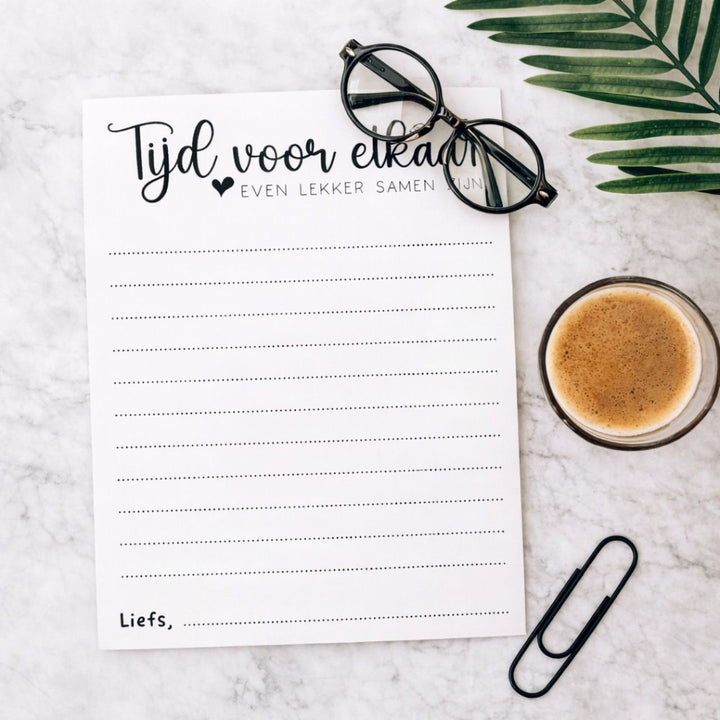 Tijd voor elkaar
EVEN LEKKER SAMEN ZIJN
Liefs,